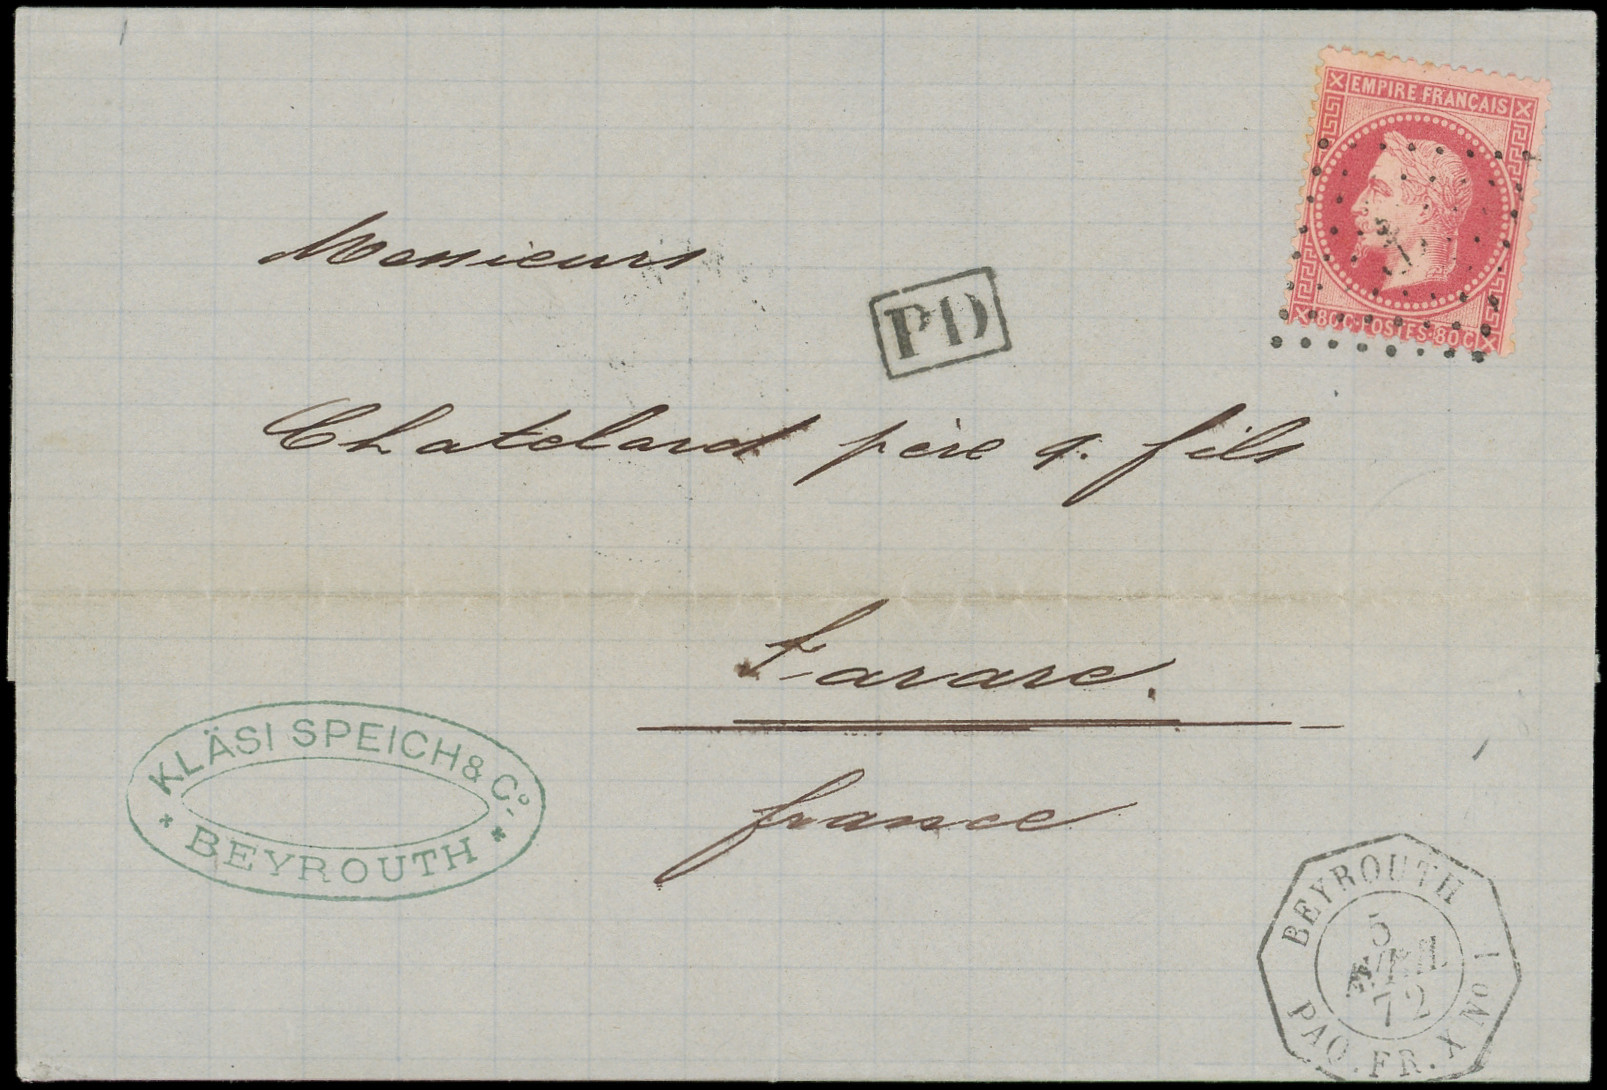 EMPIRE FRANÇAIS
80 C. POSTES. 80 C
Messieurs
PD
Chatelard père & fils
Tarare.
france
KLÄSI SPEICH & Cº.
BEYROUTH
BEYROUTH
5
AVRIL
72
PAQ. FR. X No 1